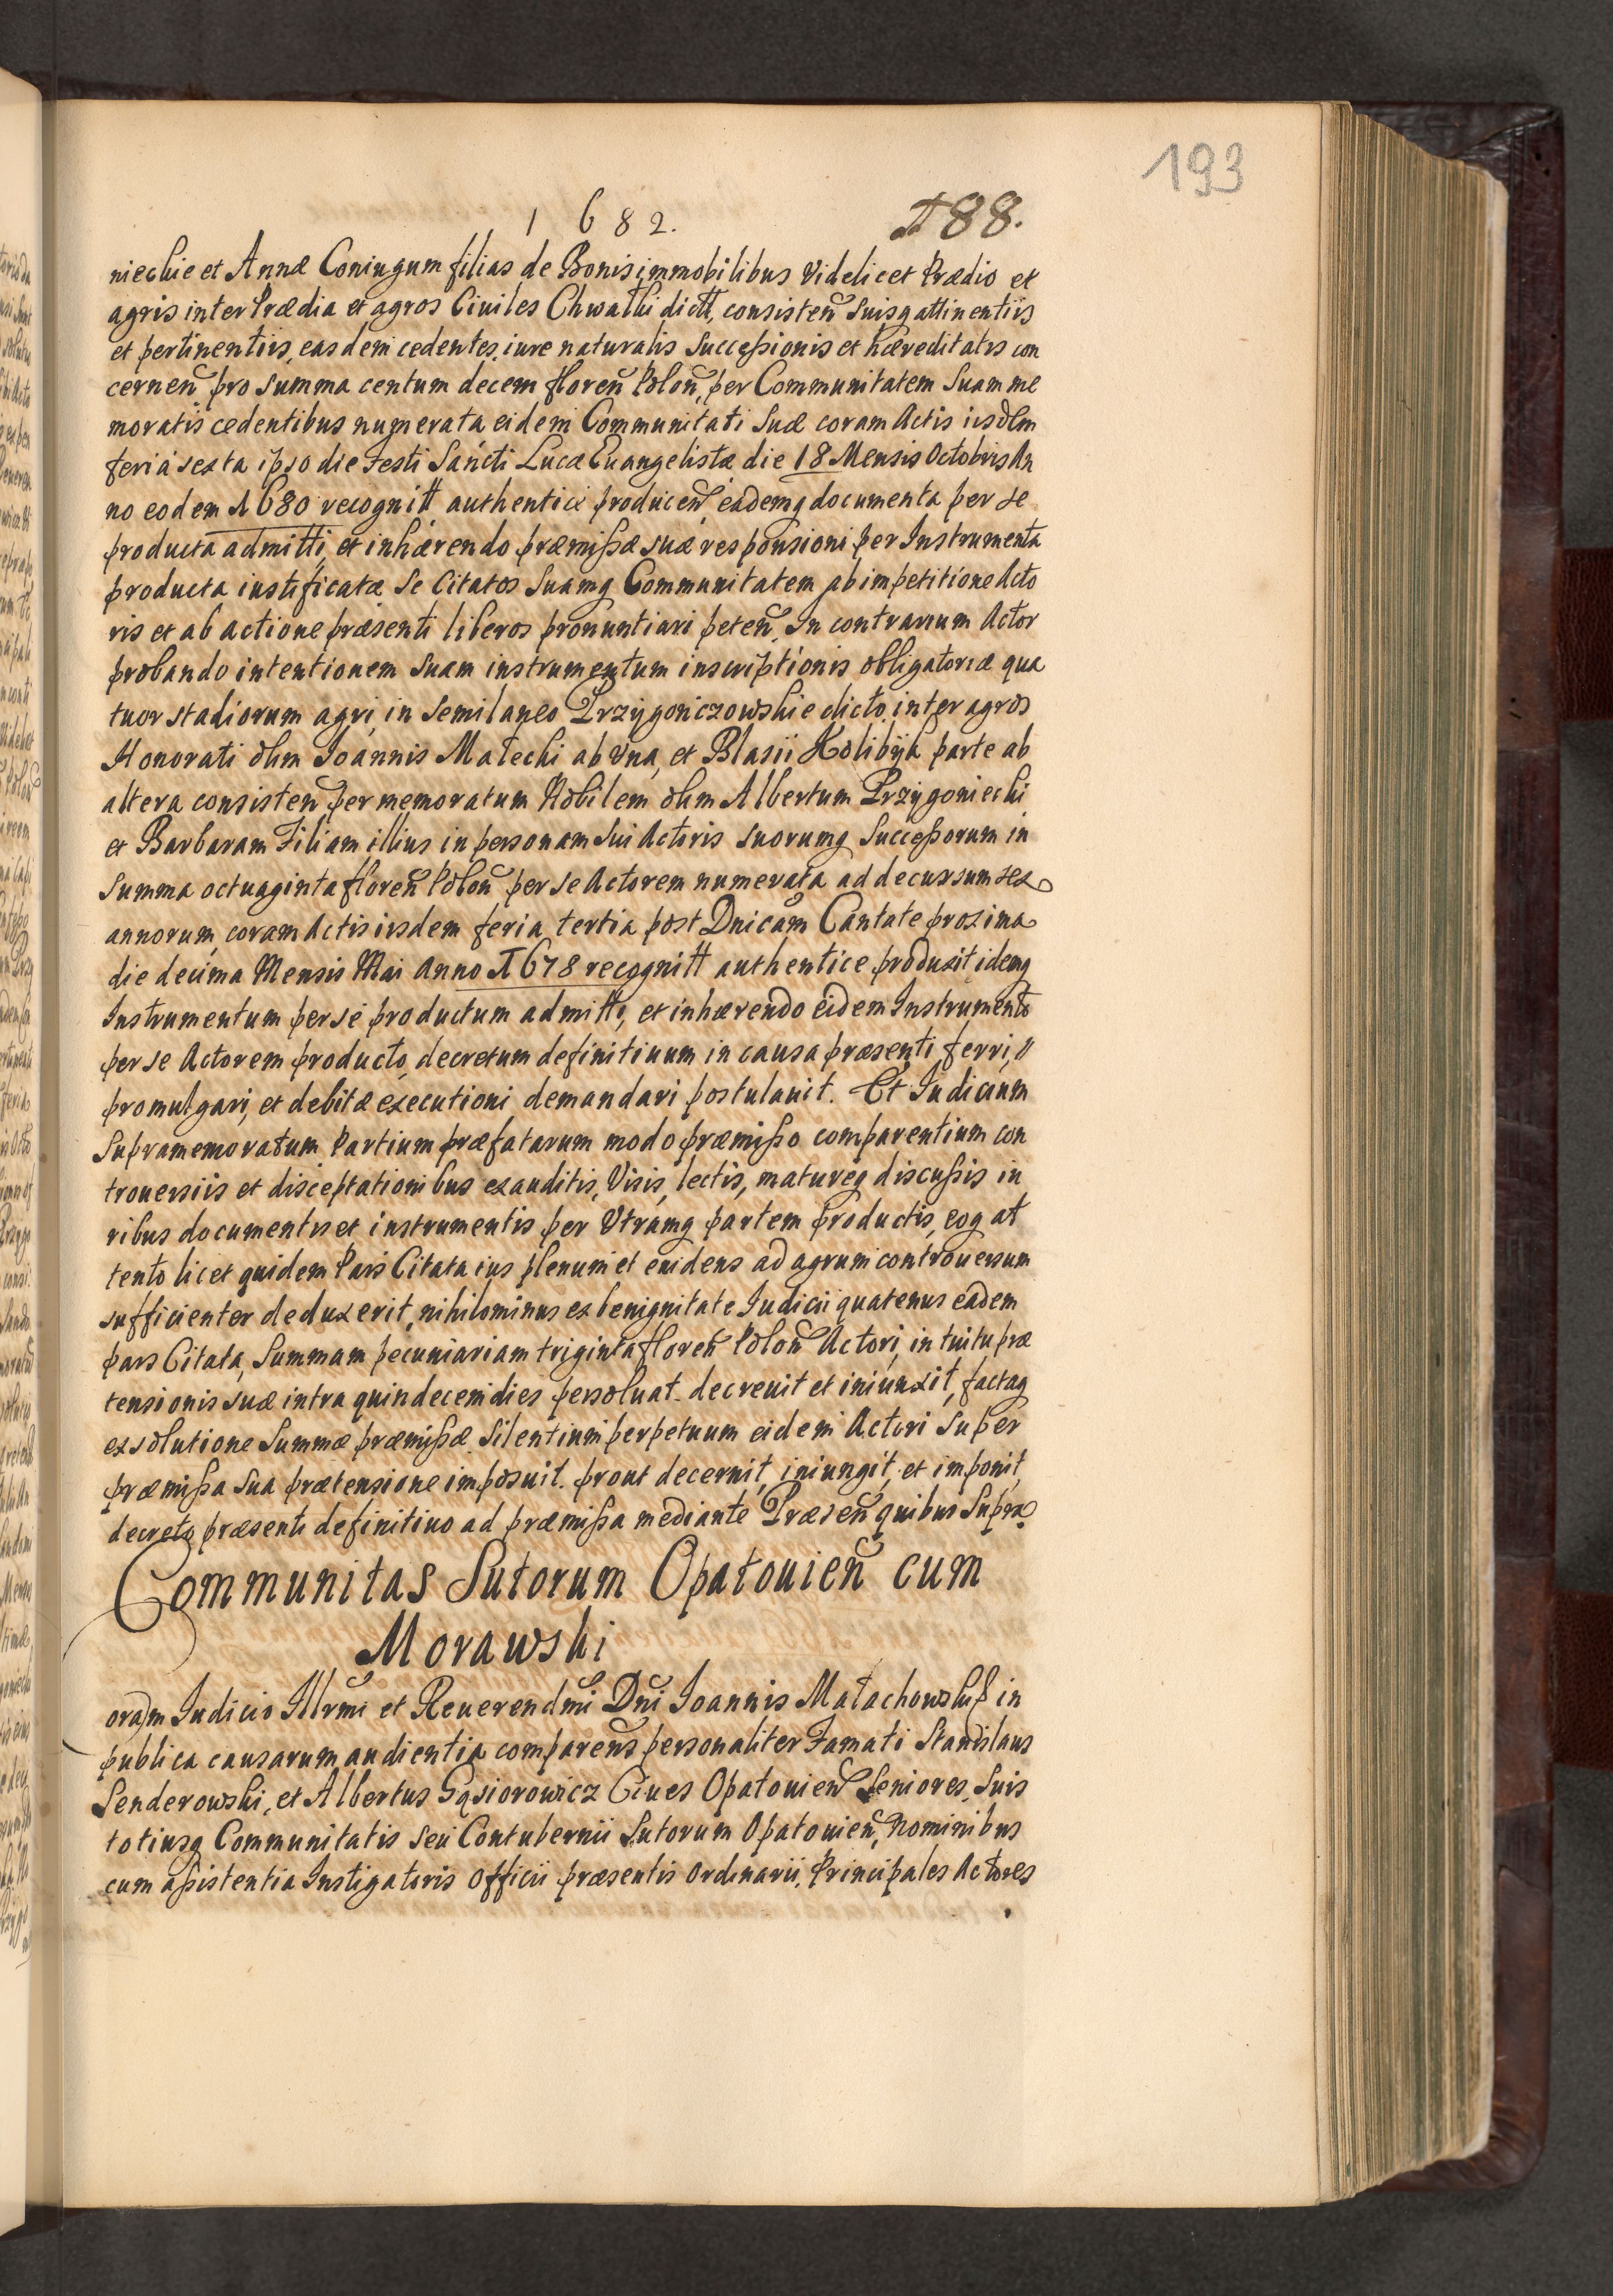 193
1682. 188.
niechie et Annæ Coniugum filias de Bonis immobilibus Videlicet Prædio et
agris inter Prædia et agros Ciuiles Chwałki dictt, consisteñ suisq attinentiis
et pertinentiis, easdem cedentes iure naturalis Successionis et hæreditatis con
cerneñ, pro summa centum decem floreñ Poloñ, per Communitatem Suam me
moratis cedentibus numerata eidem Communitati Suæ coram Actis iisdem
feria sexta ipso die Festi Sancti Lucæ Euangelistæ die 18 Mensis Octobris An
no eodem 1680 recognitt authentice produceñ, eademq documenta per se
producta admitti, et inhærendo præmissæ suæ responsioni per Instrumenta
producta iustificatæ se Citatos Suamq Communitatem ab impetitione Acto
ris et ab actione præsenti liberos pronuntiari peteñ. In contrarium Actor
probando intentionem suam instrumentum inscriptionis obligatoriæ qua
tuor stadiorum agri, in semilaneo Przygonczowskie dicto, inter agros
Honorati olim Joannis Małecki ab vna, et Blasii Kolibyk parte ab
altera consisteñ per memoratum Nobilem olim Albertum Przygoniecki
et Barbaram Filiam illius in personam sui Actoris suorumq Successorum in
summa octuaginta floreñ Poloñ per se Actorem numerata ad decursum sex
annorum, coram Actis iisdem feria tertia post Dnicam Cantate proxima
die decima Mensis Mai Anno 1678 recognitt authentice produxit idemq
Instrumentum per se productum admitti, et inhærendo eidem Instrumento
per se Actorem producto, decretum definitiuum in causa præsenti ferri,
promulgari, et debitæ executioni demandari postulauit. Et Iudicium
Supramemoratum Partium præfatarum modo præmisso comparentium con
trouersiis et disceptationibus exauditis, Visis, lectis, matureq discussis in
ribus documentis et instrumentis per Vtramq partem productis, eoq at
tento licet quidem Pars Citata ius plenum et euidens ad agrum controuersum
sufficienter deduxerit, nihilominus ex benignitate Iudicii quatenus eadem
pars Citata, Summam pecuniariam triginta floreñ Poloñ Actori, intuitu præ
tensionis suæ intra quindecem dies persoluat. decreuit et iniunxit, factaq
exsolutione Summæ præmissæ. Silentium perpetuum eidem Actori super
præmissa sua prætensione imposuit. prout decernit, iniungit, et imponit,
decreto præsenti definitiuo ad præmissa mediante Præseñ quibus Supra
Communitas Sutorum Opatouieñ cum
Morawski
Coram Iudicio Illrmi et Reuerendmi Dni Joannis Małachowski in
publica causarum audientia compareñs personaliter Famati Stanislaus
Senderowski, et Albertus Gąsiorowicz Ciues Opatouieñ Seniores, suis
totiusq Communitatis seu Contubernii Sutorum Opatouieñ, Nominibus
cum assistentia Instigatoris Officii præsentis Ordinarii, Principales Actores